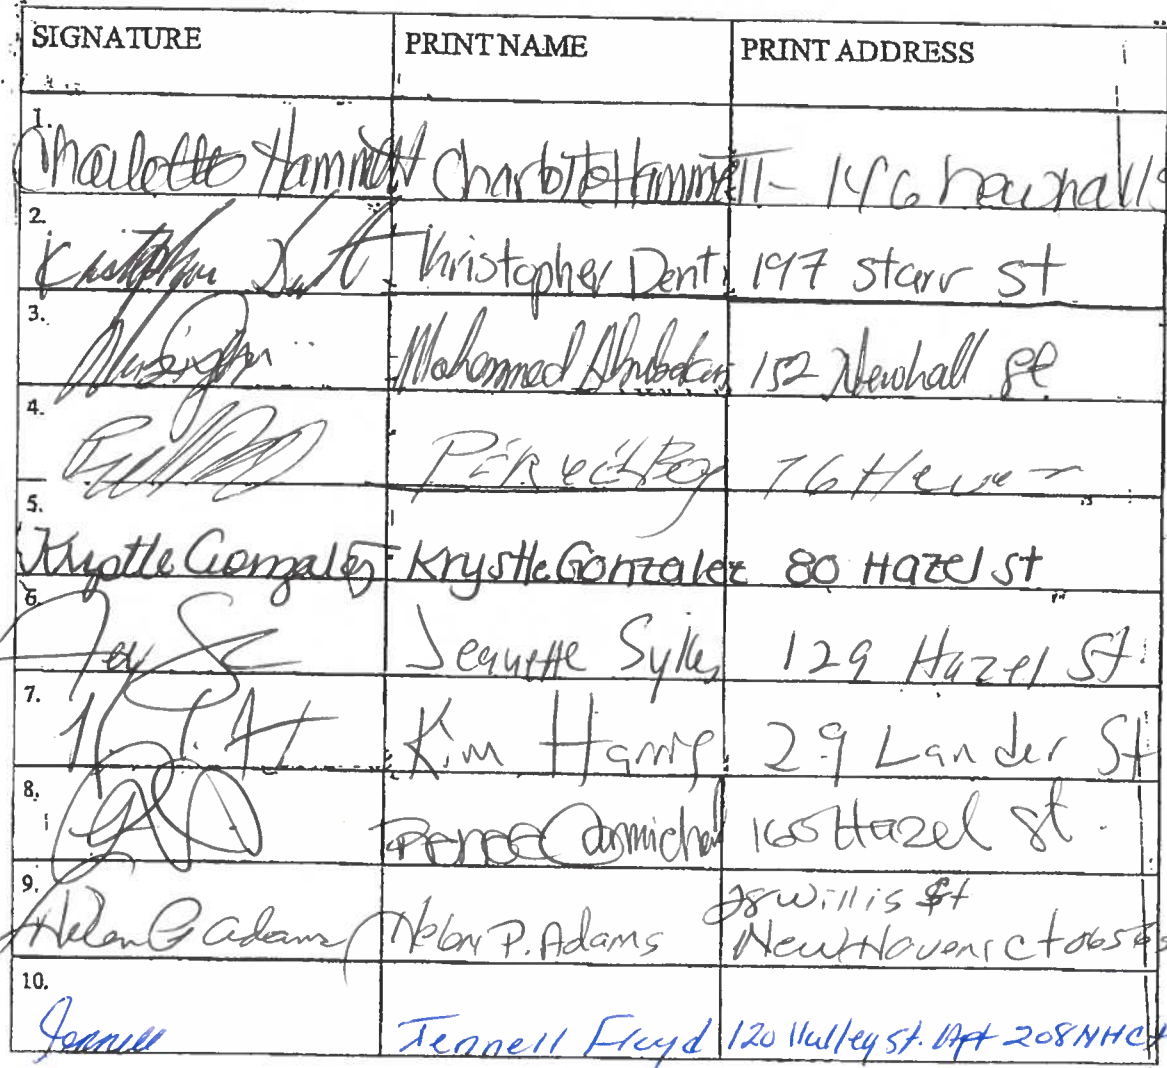 SIGNATURE PRINT NAME PRINT ADDRESS
1. Charlotte Hammett Charlotte Hammett - 146 Newhall S
2. Kristopher Dent Kristopher Dent 197 Starr St
3. Mohammed Abubakar 152 Newhall St
4. 76
5. Krystle Gonzalez Krystle Gonzalez 80 Hazel st
6. Jeanette Sykes 129 Hazel St.
7. Kim Harris 29 Lander St
8. Renee Carmichael 165 Hazel St.
9. 28 Willis St
Helen P. Adams Helen P. Adams New Haven, Ct 065
10.
Jennell Jennell Floyd 120 st. Apt 208 NHCt